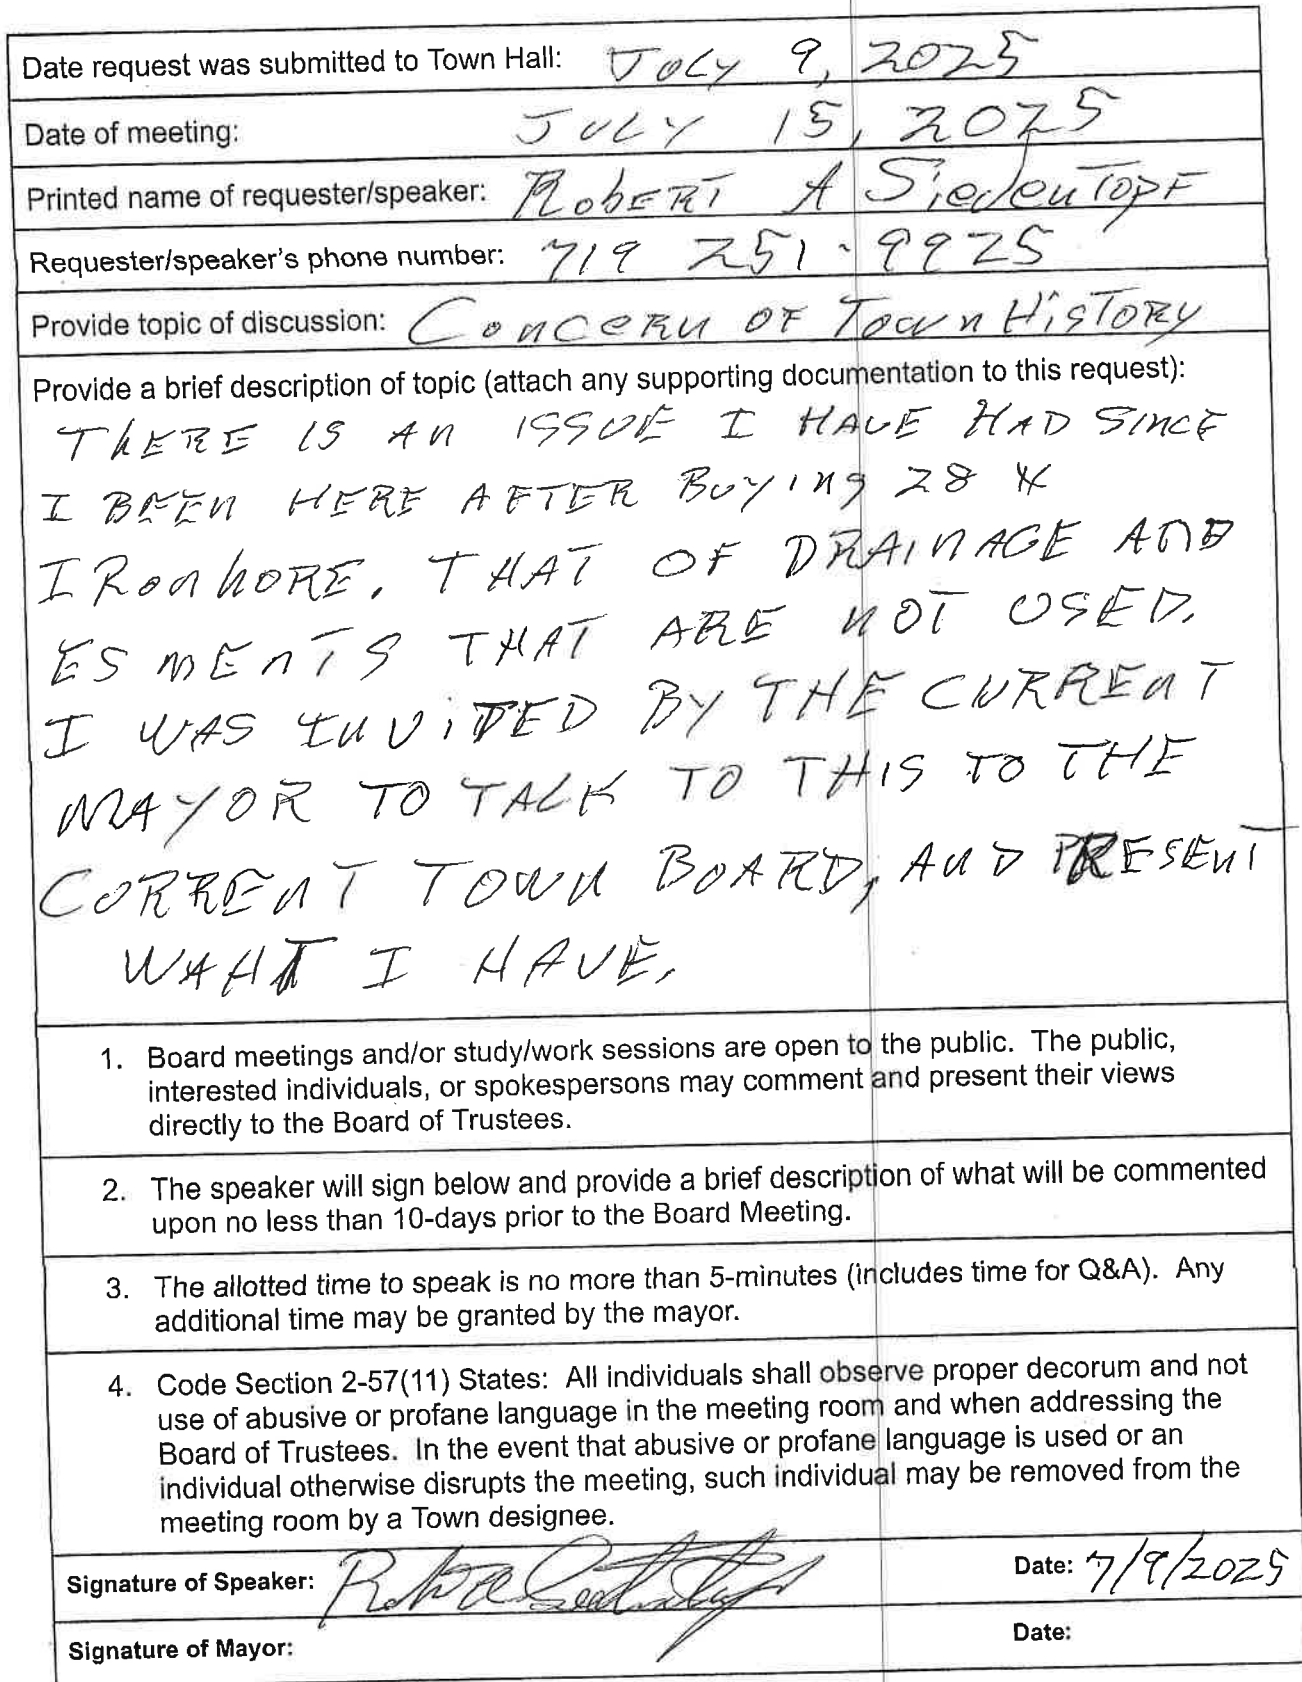 Date request was submitted to Town Hall: JULY 9, 2025
Date of meeting: JULY 15, 2025
Printed name of requester/speaker: RobERT A SiedenTOPF
Requester/speaker's phone number: 719 251-9925
Provide topic of discussion: ConceRn OF Town HiSTORY
Provide a brief description of topic (attach any supporting documentation to this request):
ThERE IS AN ISSUE I HAVE HAD SINCE
I BEEN HERE AFTER BUYING 28 4
IRonhoRE. THAT OF DRAINAGE AND
ESMENTS THAT ARE NOT USED.
I WAS INVITED BY THE CURRENT
MAYOR TO TALK TO THIS TO THE
CURRENT TOWN BOARD, AND PRESENT
WAHT I HAVE.
1. Board meetings and/or study/work sessions are open to the public. The public,
interested individuals, or spokespersons may comment and present their views
directly to the Board of Trustees.
2. The speaker will sign below and provide a brief description of what will be commented
upon no less than 10-days prior to the Board Meeting.
3. The allotted time to speak is no more than 5-minutes (includes time for Q&A). Any
additional time may be granted by the mayor.
4. Code Section 2-57(11) States: All individuals shall observe proper decorum and not
use of abusive or profane language in the meeting room and when addressing the
Board of Trustees. In the event that abusive or profane language is used or an
individual otherwise disrupts the meeting, such individual may be removed from the
meeting room by a Town designee.
Signature of Speaker: Date: 7/9/2025
Signature of Mayor: Date: